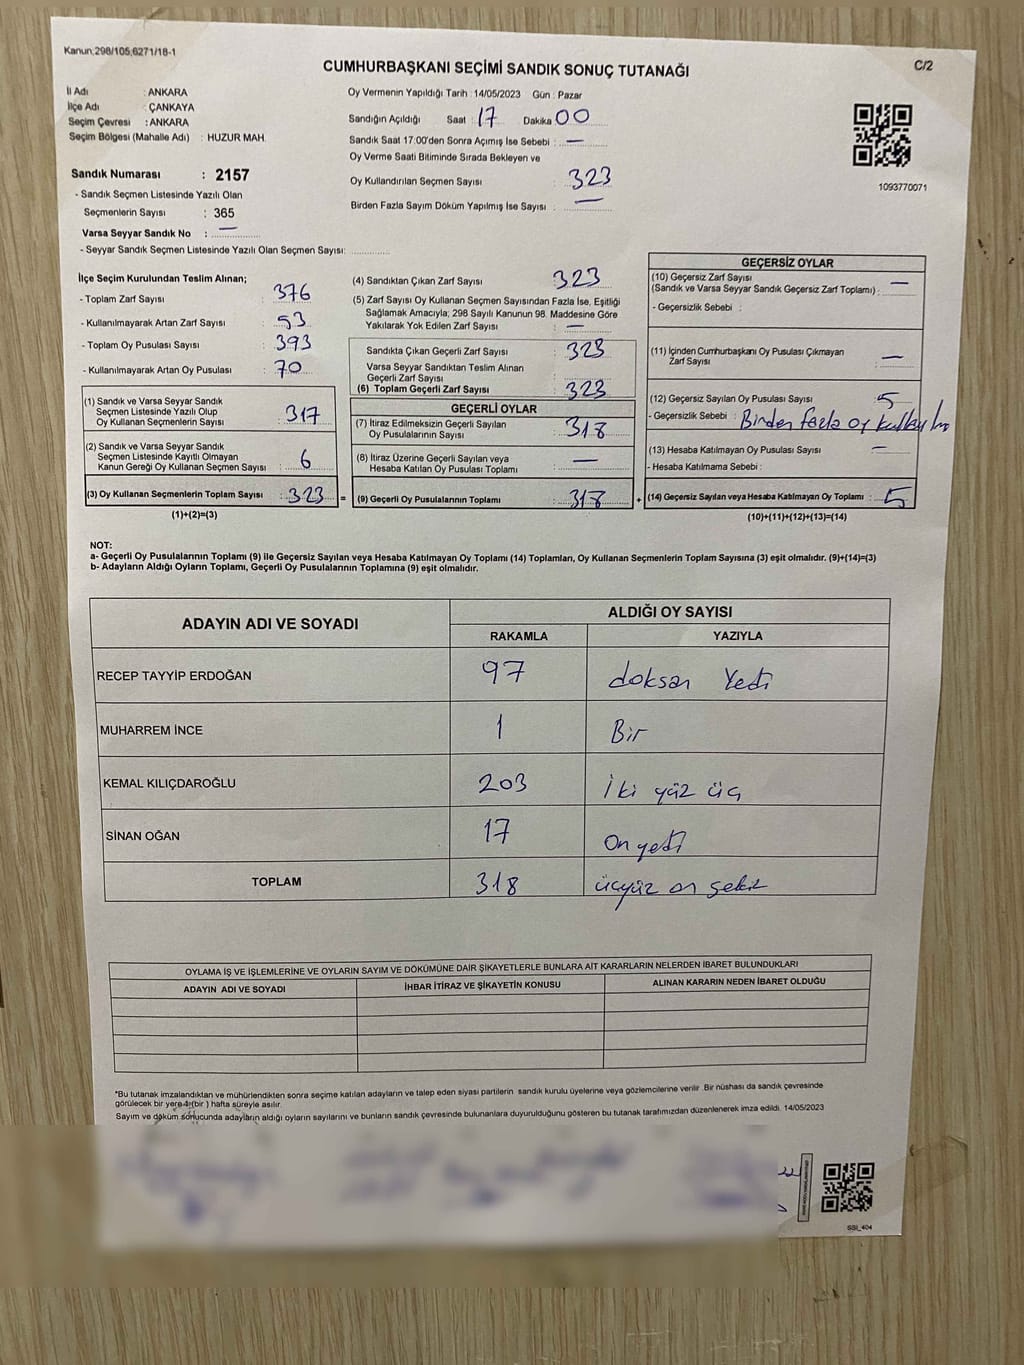 Kanun:298/105,6271/18-1
C/2
CUMHURBAŞKANI SEÇİMİ SANDIK SONUÇ TUTANAĞI
İl Adı : ANKARA
İlçe Adı : ÇANKAYA
Seçim Çevresi : ANKARA
Seçim Bölgesi (Mahalle Adı) : HUZUR MAH.
Sandık Numarası : 2157
- Sandık Seçmen Listesinde Yazılı Olan
Seçmenlerin Sayısı : 365
Varsa Seyyar Sandık No : —
- Seyyar Sandık Seçmen Listesinde Yazılı Olan Seçmen Sayısı:
Oy Vermenin Yapıldığı Tarih : 14/05/2023 Gün : Pazar
Sandığın Açıldığı Saat : 17 Dakika : 00
Sandık Saat 17:00'den Sonra Açımış İse Sebebi : —
Oy Verme Saati Bitiminde Sırada Bekleyen ve
Oy Kullandırılan Seçmen Sayısı : 323
Birden Fazla Sayım Döküm Yapılmış İse Sayısı : —
1093770071
İlçe Seçim Kurulundan Teslim Alınan;
- Toplam Zarf Sayısı : 376
- Kullanılmayarak Artan Zarf Sayısı : 53
- Toplam Oy Pusulası Sayısı : 393
- Kullanılmayarak Artan Oy Pusulası : 70
(1) Sandık ve Varsa Seyyar Sandık
Seçmen Listesinde Yazılı Olup
Oy Kullanan Seçmenlerin Sayısı : 317
(2) Sandık ve Varsa Seyyar Sandık
Seçmen Listesinde Kayıtlı Olmayan
Kanun Gereği Oy Kullanan Seçmen Sayısı : 6
(3) Oy Kullanan Seçmenlerin Toplam Sayısı : 323 =
(1)+(2)=(3)
(4) Sandıktan Çıkan Zarf Sayısı : 323
(5) Zarf Sayısı Oy Kullanan Seçmen Sayısından Fazla İse, Eşitliği
Sağlamak Amacıyla; 298 Sayılı Kanunun 98. Maddesine Göre
Yakılarak Yok Edilen Zarf Sayısı : —
Sandıkta Çıkan Geçerli Zarf Sayısı : 323
Varsa Seyyar Sandıktan Teslim Alınan
Geçerli Zarf Sayısı :
(6) Toplam Geçerli Zarf Sayısı : 323
GEÇERLİ OYLAR
(7) İtiraz Edilmeksizin Geçerli Sayılan
Oy Pusulalarının Sayısı : 318
(8) İtiraz Üzerine Geçerli Sayılan veya
Hesaba Katılan Oy Pusulası Toplamı : —
(9) Geçerli Oy Pusulalarının Toplamı : 318 +
GEÇERSİZ OYLAR
(10) Geçersiz Zarf Sayısı
(Sandık ve Varsa Seyyar Sandık Geçersiz Zarf Toplamı) : —
- Geçersizlik Sebebi :
(11) İçinden Cumhurbaşkanı Oy Pusulası Çıkmayan
Zarf Sayısı : —
(12) Geçersiz Sayılan Oy Pusulası Sayısı : 5
- Geçersizlik Sebebi : Birden fazla oy
(13) Hesaba Katılmayan Oy Pusulası Sayısı : —
- Hesaba Katılmama Sebebi :
(14) Geçersiz Sayılan veya Hesaba Katılmayan Oy Toplamı : 5
(10)+(11)+(12)+(13)=(14)
NOT:
a- Geçerli Oy Pusulalarının Toplamı (9) ile Geçersiz Sayılan veya Hesaba Katılmayan Oy Toplamı (14) Toplamları, Oy Kullanan Seçmenlerin Toplam Sayısına (3) eşit olmalıdır. (9)+(14)=(3)
b- Adayların Aldığı Oyların Toplamı, Geçerli Oy Pusulalarının Toplamına (9) eşit olmalıdır.
ADAYIN ADI VE SOYADI
ALDIĞI OY SAYISI
RAKAMLA YAZIYLA
RECEP TAYYİP ERDOĞAN 97 doksan Yedi
MUHARREM İNCE 1 Bir
KEMAL KILIÇDAROĞLU 203 iki yüz üç
SİNAN OĞAN 17 On yedi
TOPLAM 318 üçyüz on sekiz
OYLAMA İŞ VE İŞLEMLERİNE VE OYLARIN SAYIM VE DÖKÜMÜNE DAİR ŞİKAYETLERLE BUNLARA AİT KARARLARIN NELERDEN İBARET BULUNDUKLARI
ADAYIN ADI VE SOYADI İHBAR İTİRAZ VE ŞİKAYETİN KONUSU ALINAN KARARIN NEDEN İBARET OLDUĞU
*Bu tutanak imzalandıktan ve mühürlendikten sonra seçime katılan adayların ve talep eden siyasi partilerin sandık kurulu üyelerine veya gözlemcilerine verilir. Bir nüshası da sandık çevresinde
görülecek bir yere 1 (bir ) hafta süreyle asılır.
Sayım ve döküm sonucunda adayların aldığı oyların sayılarını ve bunların sandık çevresinde bulunanlara duyurulduğunu gösteren bu tutanak tarafımızdan düzenlenerek imza edildi. 14/05/2023
SSİ_404